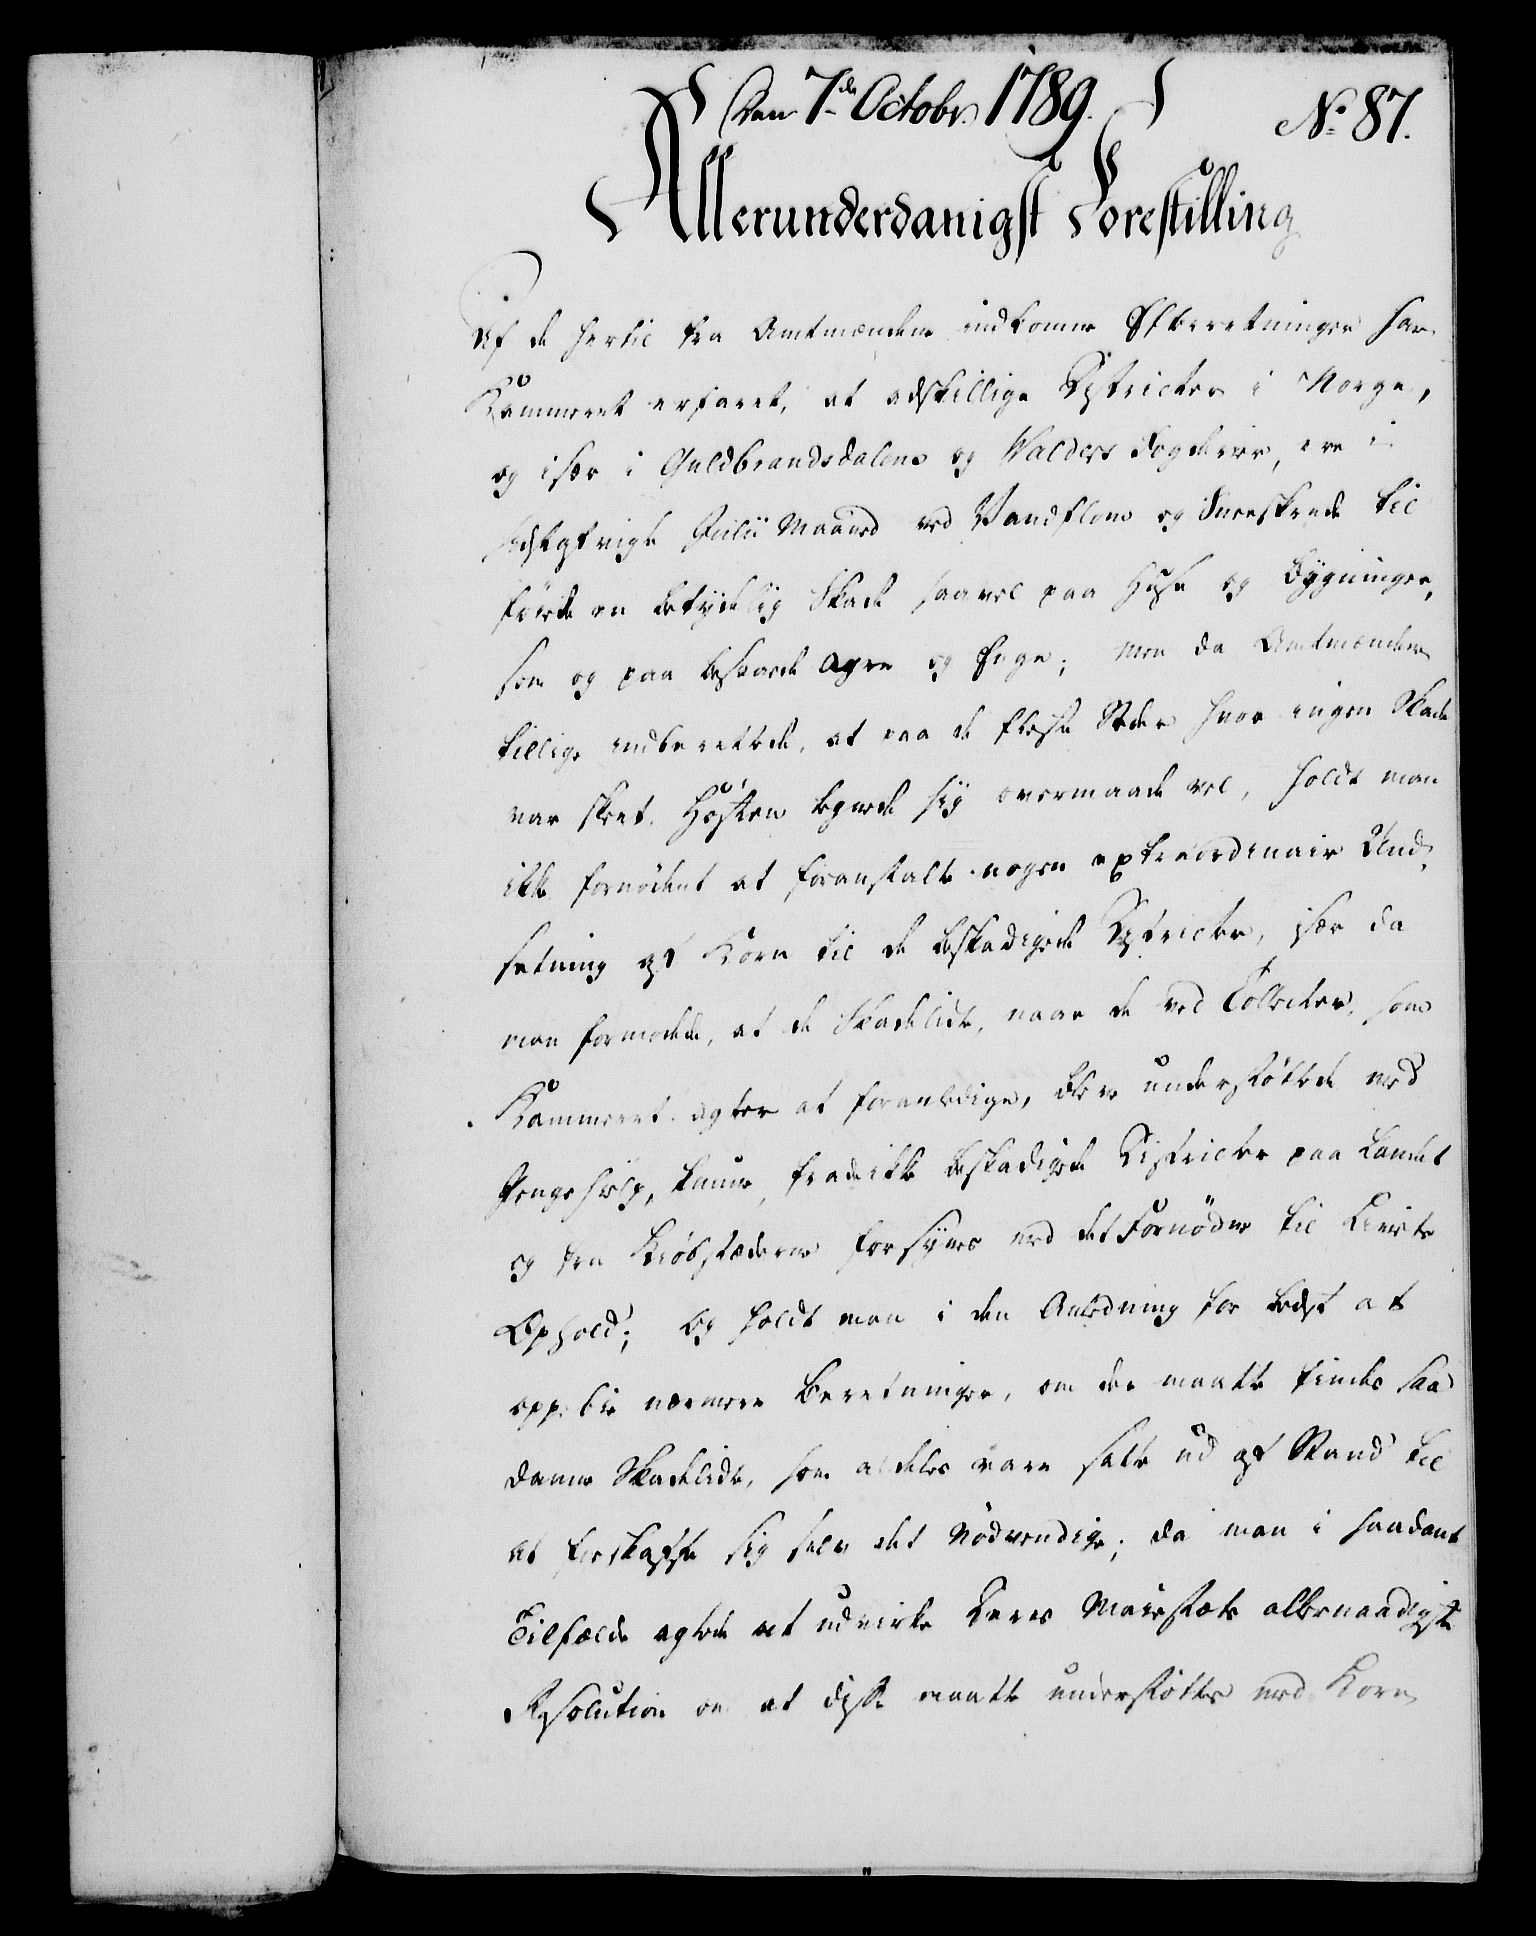 Den 7de Octobr. 1789.
No. 87.
Allerunderdanigst Forestilling
Af de hertil fra Amtmændene indkomne Efterretninger har
Kammeret erfaret, at adskillige Districter i Norge,
og især i Guldbrandsdalens og Walders Fogderier, ere i
sidstafvigte Julii Maaned ved Vandflom og Sneeskrede til
føiede en betydelig Skade saavel paa Huse og Bygninger,
som og paa besaaede Agre og Enge; men da Amtmændene
tillige indberettede, at paa de fleste Steder hvor ingen Skade
var skeet, Høsten tegnede sig overmaade vel, holdt man
ikke fornødent at foranstalte nogen extraordinair Und-
sætning af Korn til de beskadigede Districter, især da
man formodede, at de Skadelidte, naar de ved Collecter, som
Kammeret agter at foranledige, bleve understøttede med
Penge hielp, kunne fra de ikke beskadigede Districter paa Landet
og fra Kiøbstæderne forsynes med det Fornødne til Livets
Ophold; Og holdt man i den Anledning for bedst at
oppebie nærmere Beretninger, om der maatte findes saa
danne Skadelidte, som aldeles vare satte ud af Stand til
at forskaffe sig selv det Nødvendige; da man i saadant
Tilfælde agtede at udvirke Deres Majestæts allernaadigste
Resolution om at disse maatte understøttes med Korn